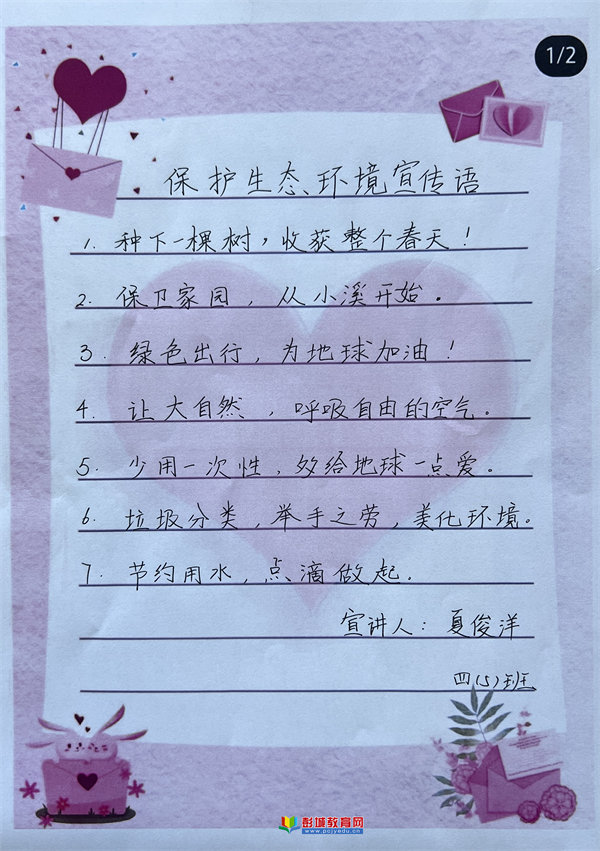 1/2
保护生态环境宣传语
1. 种下一棵树，收获整个春天！
2. 保卫家园，从小溪开始。
3. 绿色出行，为地球加油！
4. 让大自然，呼吸自由的空气。
5. 少用一次性，多给地球一点爱。
6. 垃圾分类，举手之劳，美化环境。
7. 节约用水，点滴做起.
宣讲人：夏俊洋
四(5)班
彭城教育网
www.pcjyedu.cn